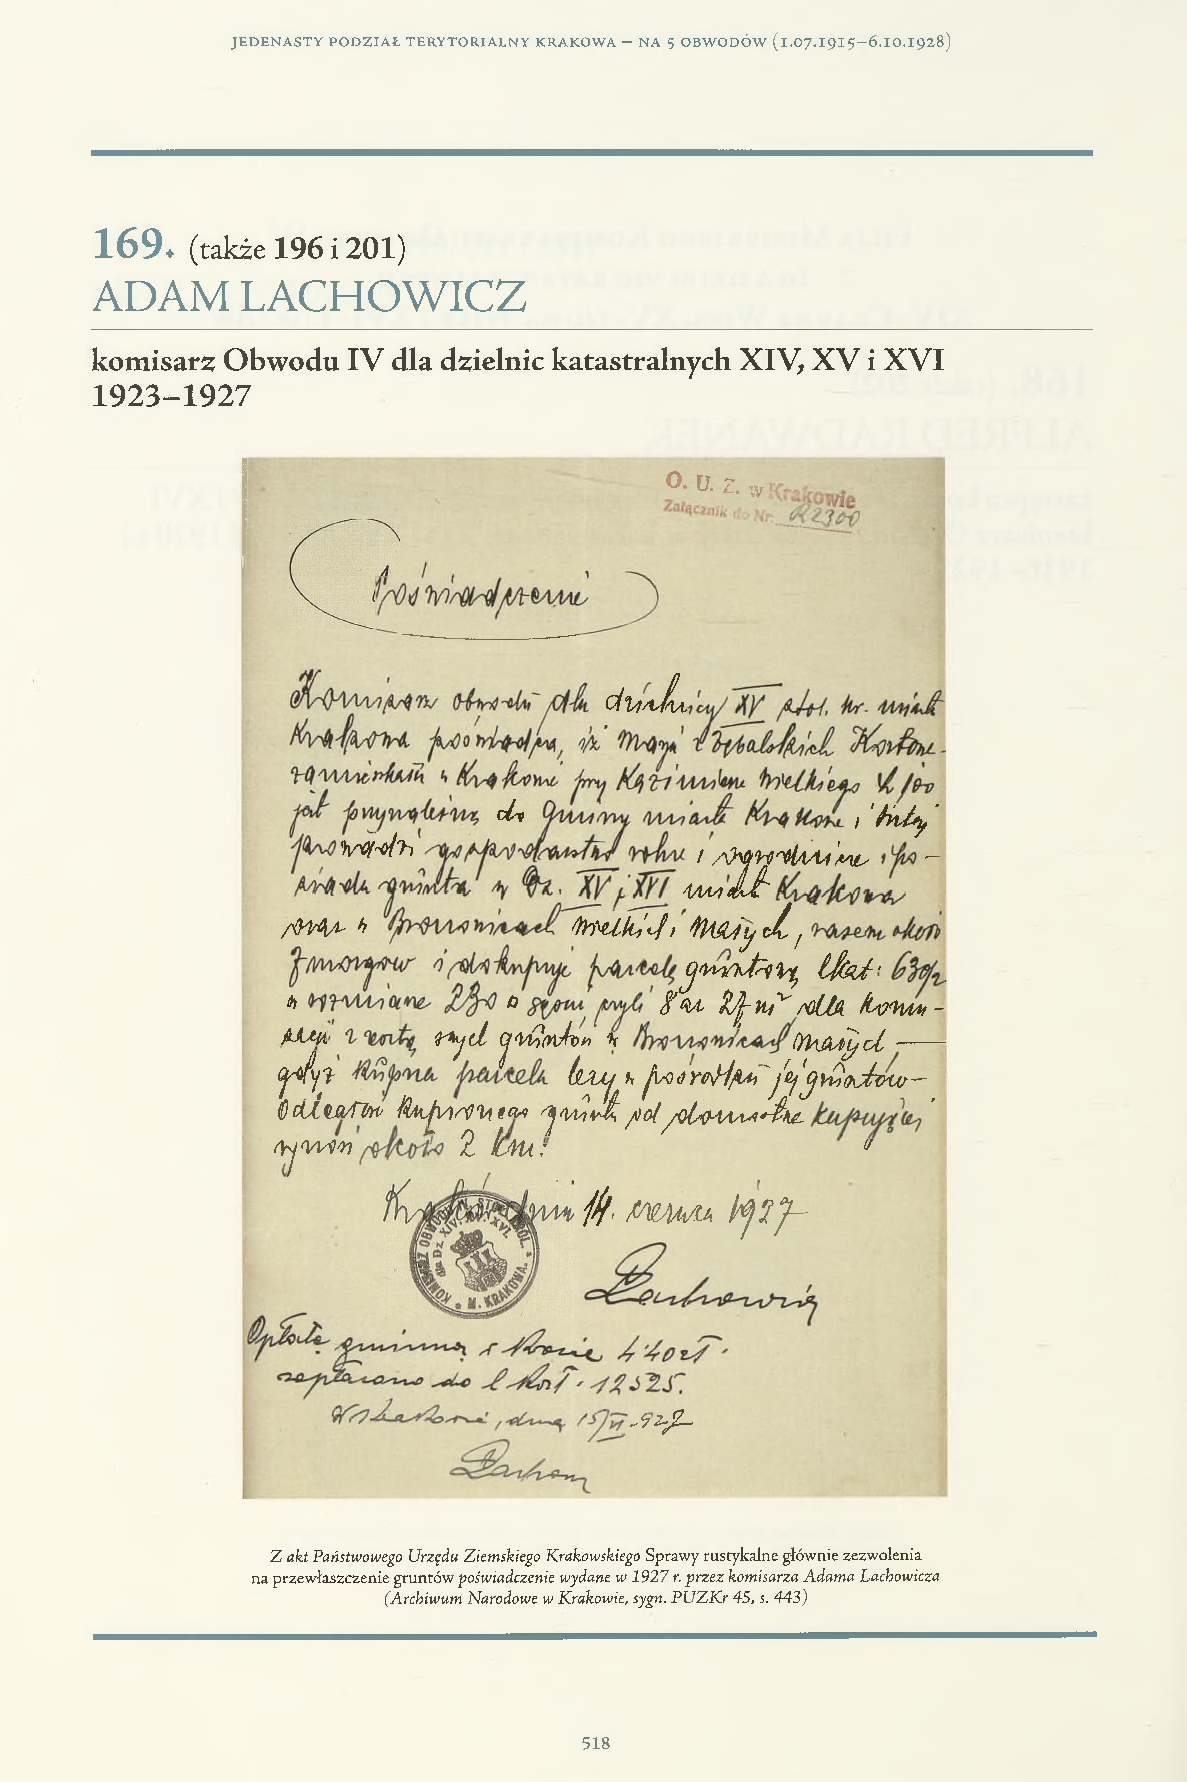 JEDENASTY PODZIAŁ TERYTORIALNY KRAKOWA – NA 5 OBWODÓW (1.07.1915–6.10.1928)
169. (także 196 i 201)
ADAM LACHOWICZ
komisarz Obwodu IV dla dzielnic katastralnych XIV, XV i XVI
1923–1927
O. U. Z. w Krakowie
Załącznik do Nr. R2300
Poświadczenie
Komisarz obwodu dla dzielnicy XV stoł. kr. miasta
Krakowa poświadcza, iż Marya z
zamieszkała w Krakowie przy Kazimierza Wielkiego L 100
jest przynależną do Gminy miasta Krakowa i tutaj
prowadzi gospodarstwo rolne i ogrodnicze i po-
siada grunta w Dz. XV i XVI miasta Krakowa
oraz w Bronowicach Wielkich i Małych, razem około
7 morgów i dokupuje parcelę gruntową lkat: 630/2
w rozmiarze 230 □ sążni czyli 8 ar 27 m² dla koma-
sacji z resztą swych gruntów w Bronowicach Małych —
gdyż kupna parcela leży w pośrodku jej gruntów –
Odległość kupionego gruntu od domostwa kupującej
wynosi około 2 Km.
Kraków dnia 14. czerwca 1927
KOMISARZ OBWODU IV. STOŁ. KRÓL. M. KRAKOWA.
dla Dz. XIV. XV. XVI.
Lachowicz
Opłatę gminną w kwocie 4·40 zł.
zapłacono do L kwit. 12525.
W Krakowie, dnia 15/VI. 927
Lachow
Z akt Państwowego Urzędu Ziemskiego Krakowskiego Sprawy rustykalne głównie zezwolenia
na przewłaszczenie gruntów poświadczenie wydane w 1927 r. przez komisarza Adama Lachowicza
(Archiwum Narodowe w Krakowie, sygn. PUZKr 45, s. 443)
518